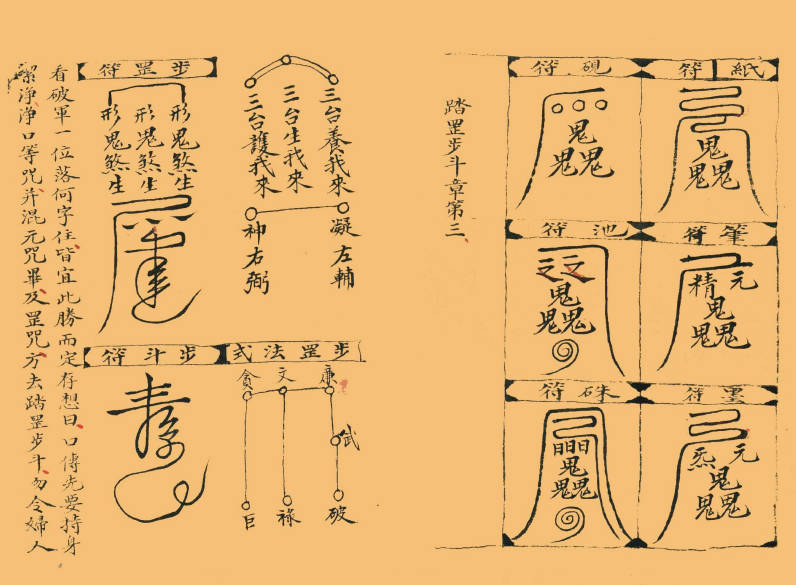 紙符
鬼
鬼鬼
筆符
元
精
鬼
鬼鬼
墨符
元
炁
鬼
鬼鬼
硯符
鬼
鬼鬼
池符
鬼
鬼鬼
硃符
鬼
鬼鬼
踏罡步斗章第三
三台養我來
三台生我來
三台護我來
凝左輔
神右弼
步罡法式
廉
文
貪
武
破
祿
巨
步罡符
形鬼煞生
形鬼煞生
形鬼煞生
步斗符
看破軍一位落何字住皆宜此勝而定存想曰口傳先要持身
潔淨淨口等咒并混元咒畢及罡咒方去踏罡步斗勿令婦人